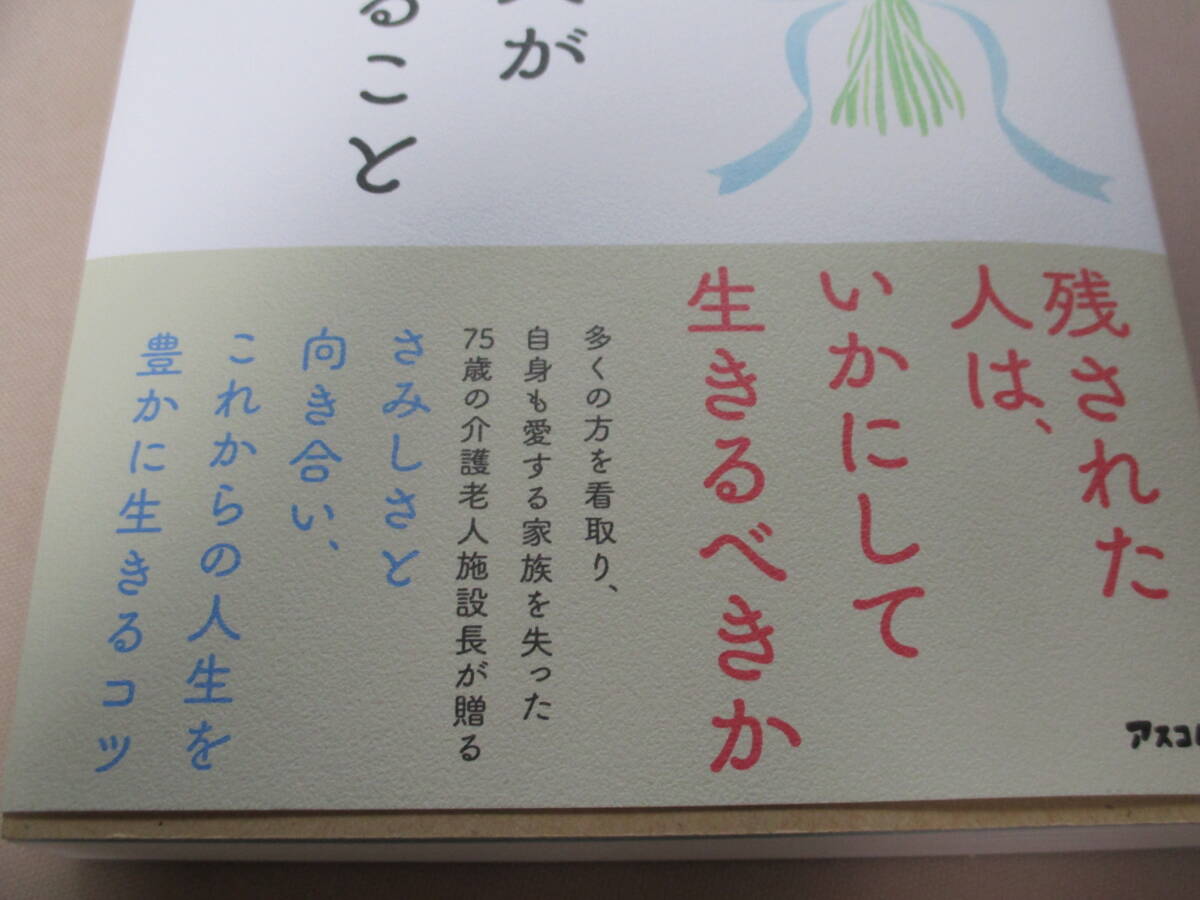 が
ること
残された
人は、
いかにして
生きるべきか
多くの方を看取り、
自身も愛する家族を失った
75歳の介護老人施設長が贈る
さみしさと
向き合い、
これからの人生を
豊かに生きるコツ
アスコ